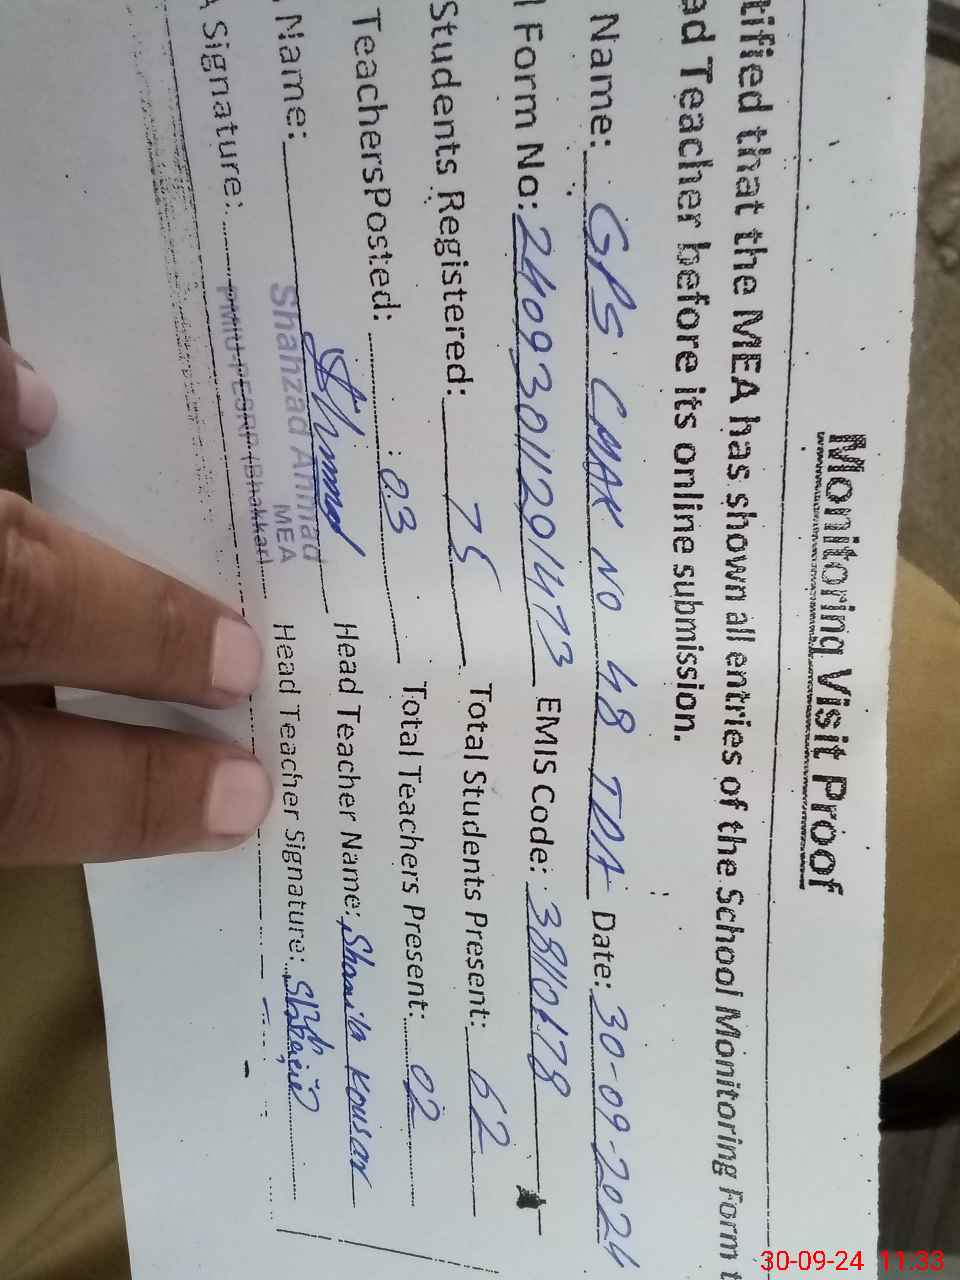 Monitoring Visit Proof
tified that the MEA has shown all entries of the School Monitoring Form t
ad Teacher before its online submission.
Name: GPS CHAK NO 48 TDA Date: 30-09-2024
l Form No: 2409301129011473 EMIS Code: 38110178
Students Registered: 75 Total Students Present: 62
TeachersPosted: 03 Total Teachers Present: 02
Name: Head Teacher Name: Shamila Kousar
Shahzad Ahmad
MEA
A Signature: Head Teacher Signature:
PMIU-PESRP (Bhakkar)
30-09-24 11:33